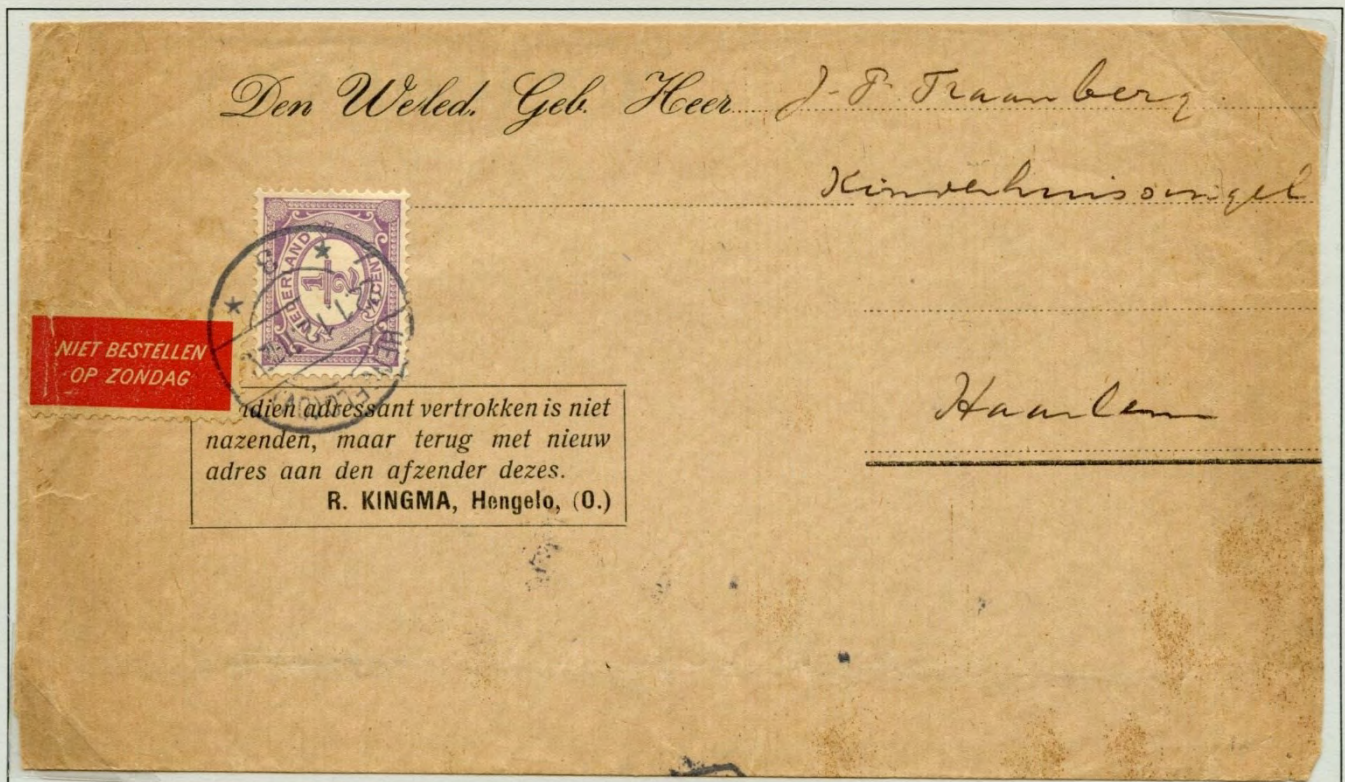 Den Weled. Geb. Heer J. P. Traanberg.
Kinderhuissingel
Haarlem
NEDERLAND
1/2 CENT
HENGELO (OV)
NIET BESTELLEN
OP ZONDAG
dien adressant vertrokken is niet
nazenden, maar terug met nieuw
adres aan den afzender dezes.
R. KINGMA, Hengelo, (O.)